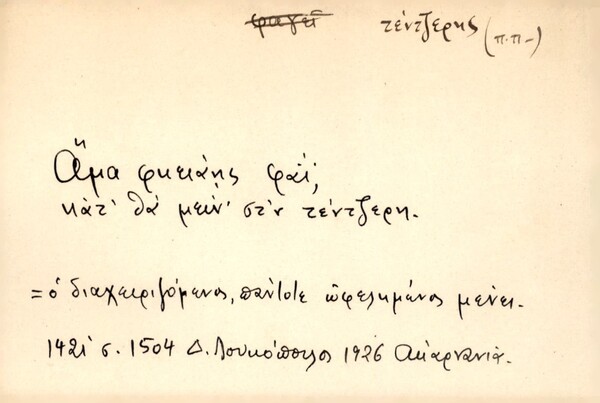 φαγεῖ τέντζερης (π.π-)
Ἅμα φκειάης φαΐ,
κάτ' θὰ μείν' στ'ν τέντζερη.
= ὁ διαχειριζόμενος, πάντοτε ὠφελημένος μένει.
1421 σ. 1504 Δ. Λουκόπουλος 1926 Ἀκαρνανία.